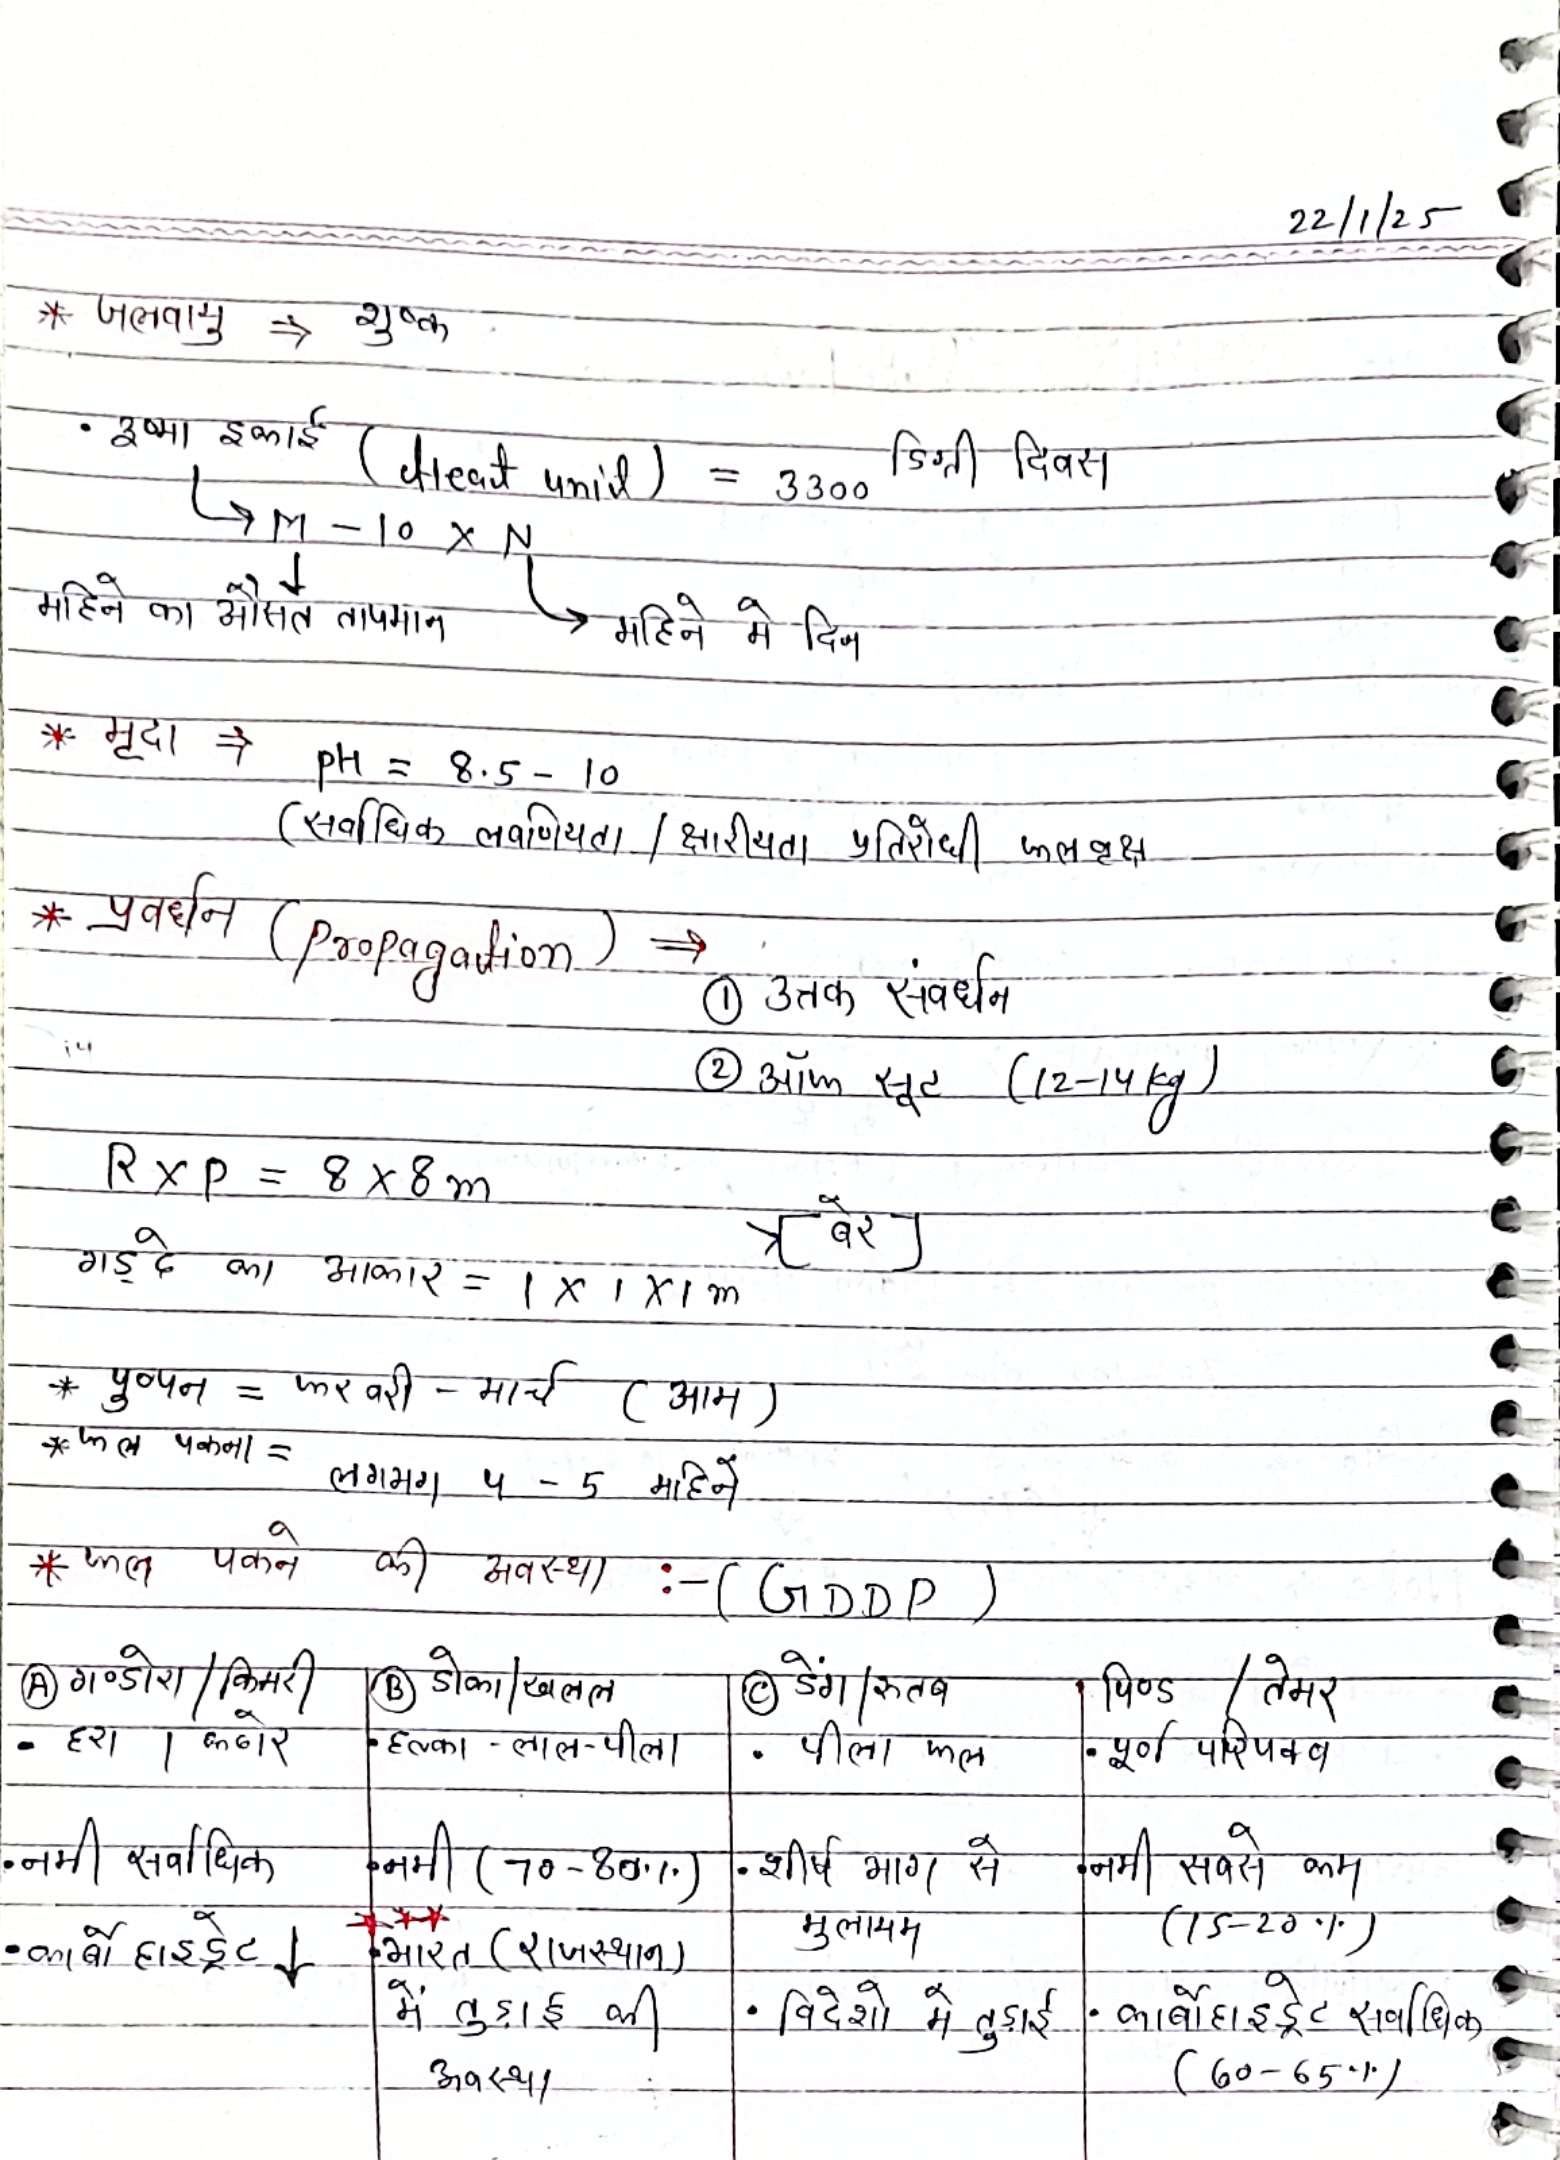 22/1/25
* जलवायु ⇒ शुष्क
• उष्मा इकाई (Heat unit) = 3300 डिग्री दिवस
↳ M - 10 x N
महिने का औसत तापमान → महिने मे दिन
* मृदा ⇒ pH = 8.5 - 10
(सर्वाधिक लवणियता / क्षारीयता प्रतिरोधी फलवृक्ष
* प्रवर्धन (Propagation) ⇒
① उत्तक संवर्धन
② ऑफ सूट (12-14 kg)
R x P = 8 x 8 m
[बेर]
गड्दे का आकार = 1 x 1 x 1 m
* पुष्पन = फरवरी - मार्च (आम)
* फल पकना =
लगभग 4 - 5 महिनें
* फल पकने की अवस्था :- (GDDP)
Ⓐ गण्डोरा / किमरी Ⓑ डोका/खलल Ⓒ डेंग/रूतब • पिण्ड / तेमर
• हरा / कठोर • हल्का - लाल-पीला • पीला फल • पूर्ण परिपक्व
• नमी सर्वाधिक • नमी (70-80%) • शीर्ष भाग से • नमी सबसे कम
*** मुलायम (15-20%)
• कार्बोहाइड्रेट ↓ • भारत (राजस्थान)
में तुड़ाई की • विदेशो मे तुड़ाई • कार्बोहाइड्रेट सर्वाधिक
अवस्था (60-65%)